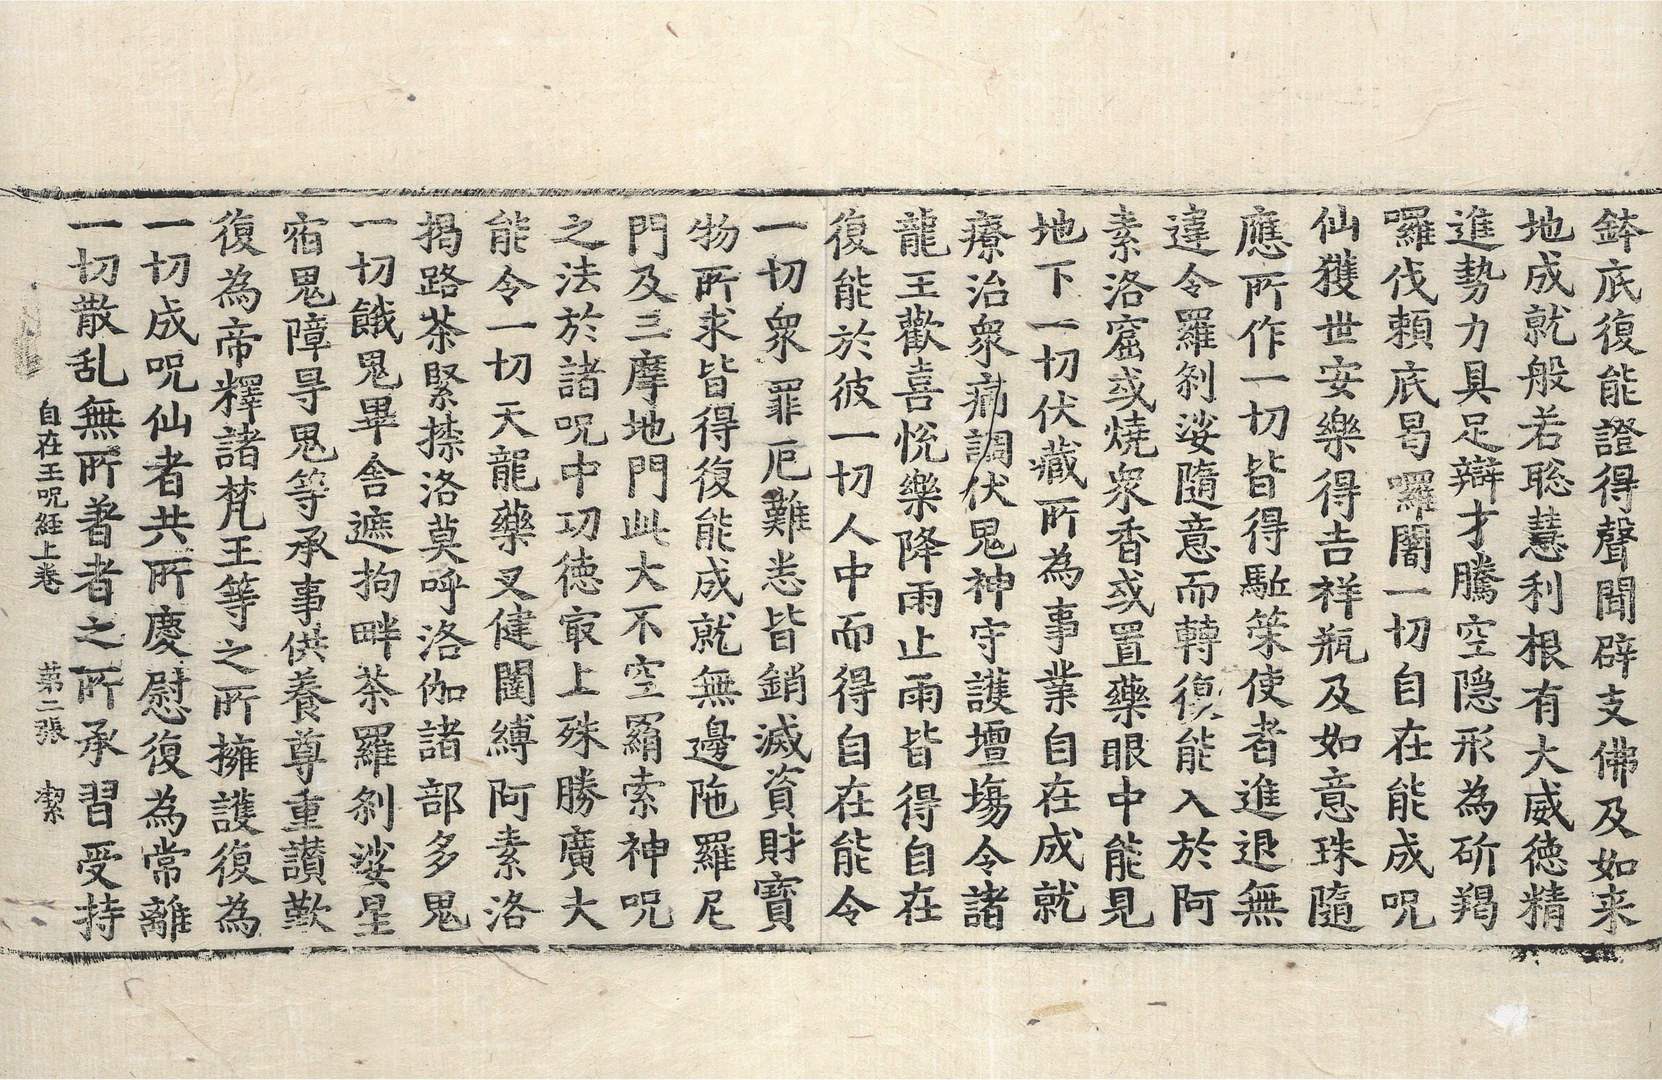 鉢底復能證得聲聞辟支佛及如来
地成就般若聡慧利根有大威德精
進勢力具足辯才騰空隱形為斫羯
囉伐頼底曷囉闍一切自在能成呪
仙獲世安樂得吉祥瓶及如意珠隨
應所作一切皆得駈策使者進退無
違令羅刹娑隨意而轉復能入於阿
素洛窟或燒衆香或置藥眼中能見
地下一切伏藏所為事業自在成就
療治衆病調伏鬼神守護壇塲令諸
龍王歡喜悅樂降雨止雨皆得自在
復能於彼一切人中而得自在能令
一切衆罪厄難悉皆銷滅資財寶
物所求皆得復能成就無邊陁羅尼
門及三摩地門此大不空羂索神呪
之法於諸呪中功德冣上殊勝廣大
能令一切天龍藥叉健闥縛阿素洛
揭路茶緊捺洛莫呼洛伽諸部多鬼
一切餓鬼畢舍遮拘畔茶羅刹娑星
宿鬼障㝵鬼等承事供養尊重讃歎
復為帝釋諸梵王等之所擁護復為
一切成呪仙者共所慶慰復為常離
一切散乱無所著者之所承習受持
自在王呪経上卷 第二張 㓗